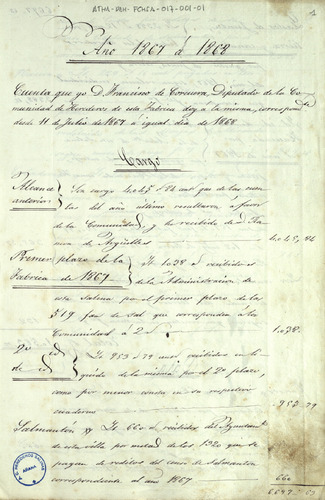 ATHA-DAH-FCHSA-017-001-01
1
Año 1867 á 1868
Cuenta que yo D. Francisco de Corcuera Diputado de la Co
munidad de Herederos de esta Fabrica doy á la misma, correspond.te
desde 11 de Julio de 1867 á igual dia de 1868.
Cargo
Alcance
anterior
Son cargo 4.045 " 86 que de las cuen
tas del año ultimo resultaron á favor
de la Comunidad, y he recibido de
de Argüelles
4.045,, 86
Primer plazo de la
Fabrica de 1867
Yt 1.038 recibidos
de la Administracion de
esta Salina por el primer plazo de las
519 fan.s de sal que corresponden á la
Comunidad á 2
1.038 "
Yt 953 " 79 recibidos en li
quido de la misma por el 2º plazo,
como por menor consta en su respectivo
cuaderno
953 " 79
Salmanton
Yt 660 recibidos del Ayuntam.to
de esta villa por mitad de los 1320 que se
pagan de reditos del censo de Salmanton
correspondiente al año 1867
660
6697 " 65